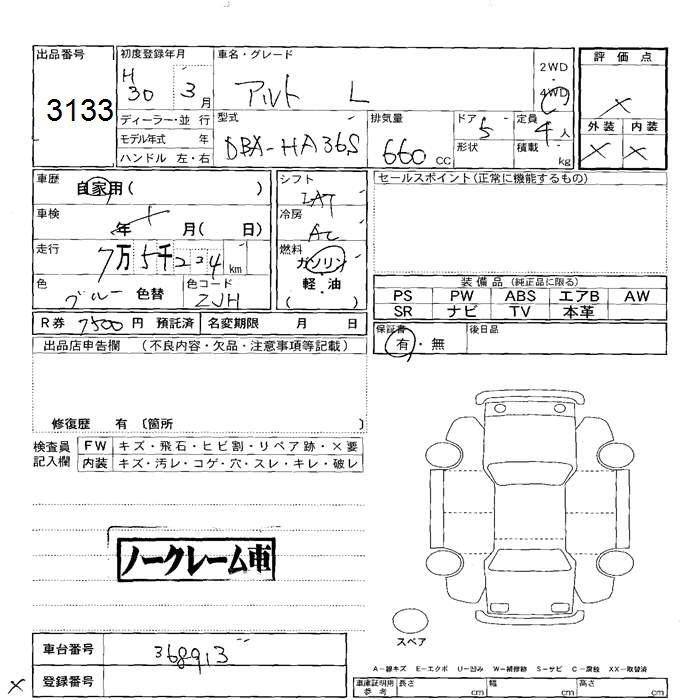 出品番号 初度登録年月 車名・グレード 2WD 評価点
3133 H30 3月 アルト L 4WD ×
ディーラー・並行 型式 排気量 ドア 定員 外装 内装
モデル年式 年 DBA-HA36S 660cc 5 4人 × ×
ハンドル 左・右 形状 積載 kg
車歴 自家用( ) シフト セールスポイント(正常に機能するもの)
車検 年 月( 日) 冷房 AC
走行 7万5千224km 燃料 ガソリン
色 ブルー 色替 色コード ZJH 軽・油 ( )
装備品(純正品に限る)
PS PW ABS エアB AW
SR ナビ TV 本革
R券 7500円 預託済 名変期限 月 日 保証書 有・無 後日品
出品店申告欄 (不良内容・欠品・注意事項等記載)
修復歴 有 〔箇所 〕
検査員記入欄 FW キズ・飛石・ヒビ割・リペア跡・×要
内装 キズ・汚レ・コゲ・穴・スレ・キレ・破レ
ノークレーム車
スペア
車台番号 368913
A-線キズ E-エクボ U-凹ミ W-補修跡 S-サビ C-腐蝕 XX-取替済
× 登録番号 車庫証明用参考 長さ cm 幅 cm 高さ cm